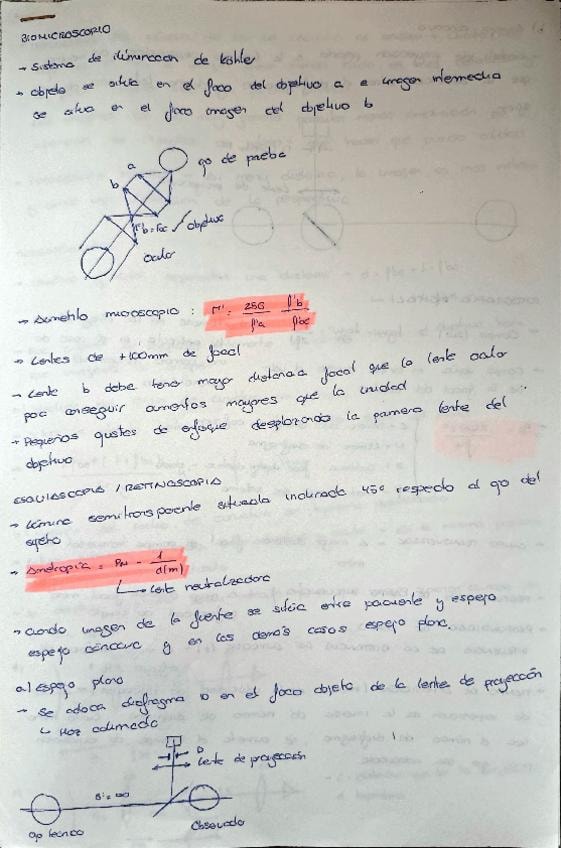 BIOMICROSCOPIO
→ Sistema de iluminacion de köhler
→ objeto se sitúa en el foco del objetivo a e imagen intermedia
se situa en el foco imagen del objetivo b
a
b
ojo de prueba
f'b = foc
objetivo
ocular
→ Aumento microscopio : M' = 250/f'a f'b/f'oc
→ Lentes de +100mm de focal
→ Lente b debe tener mayor distancia focal que la lente ocular
para conseguir aumentos mayores que la unidad
→ Pequeños ajustes de enfoque desplazando la primera lente del
objetivo
ESQUIASCOPIA / RETINOSCOPIA
→ Lámina semitransparente situada inclinada 45º respecto al ojo del
sujeto
→ Ametropía = PN - 1/d(m)
↳ lente neutralizadora
→ Cuando imagen de la fuente se sitúa entre paciente y espejo
espejo cóncavo y en los demás casos espejo plano.
a) Espejo plano
→ Se coloca diafragma D en el foco objeto de la lente de proyección
↳ Haz colimado
D
Lente de proyección
S' = ∞
ojo teórico
Observador